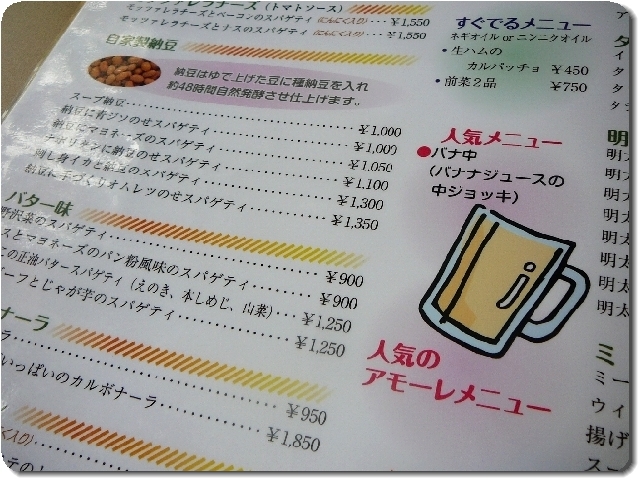 モッツァレラチーズとベーコンのスパゲティ (にんにく入り) … ¥1,550
モッツァレラチーズとナスのスパゲティ (にんにく入り) … ¥1,550
自家製納豆
納豆はゆで上げた豆に種納豆を入れ
約48時間自然発酵させ仕上げます。
スープ納豆 … ¥1,000
納豆に青ジソのせスパゲティ … ¥1,000
納豆にマヨネーズのスパゲティ … ¥1,050
ナポリタンに納豆のせスパゲティ … ¥1,100
刺し身イカと納豆のスパゲティ … ¥1,300
納豆に手づくりオムレツのせスパゲティ … ¥1,350
バター味
野沢菜のスパゲティ … ¥900
スとマヨネーズのパン粉風味のスパゲティ … ¥900
の正油バタースパゲティ (えのき、本しめじ、山菜) … ¥1,250
ーフとじゃが芋のスパゲティ … ¥1,250
ナーラ
ラ … ¥950
いっぱいのカルボナーラ … ¥1,850
すぐでるメニュー
ネギオイル or ニンニクオイル
・生ハムの
カルパッチョ ¥450
・前菜2品 ¥750
人気メニュー
●バナ中
(バナナジュースの
中ジョッキ)
人気の
アモーレメニュー
明
明太
明太
明太
明太
明太
明太
ミ
ミー
ウィ
揚げ
スー